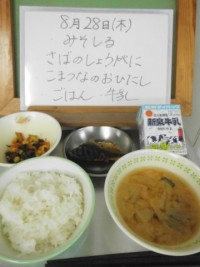 8月28日(木)
・みそしる
さばのしょうがに
こまつなのおひたし
ごはん ・牛乳
牛乳